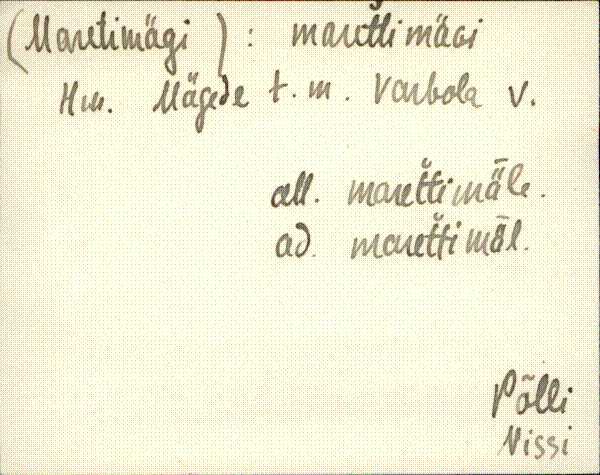 (Maretimägi) : maretti mäɢi
Hm. Mägede t. m. Varbola v.
all. maretti mäle.
ad. maretti mäl.
Põlli
Nissi